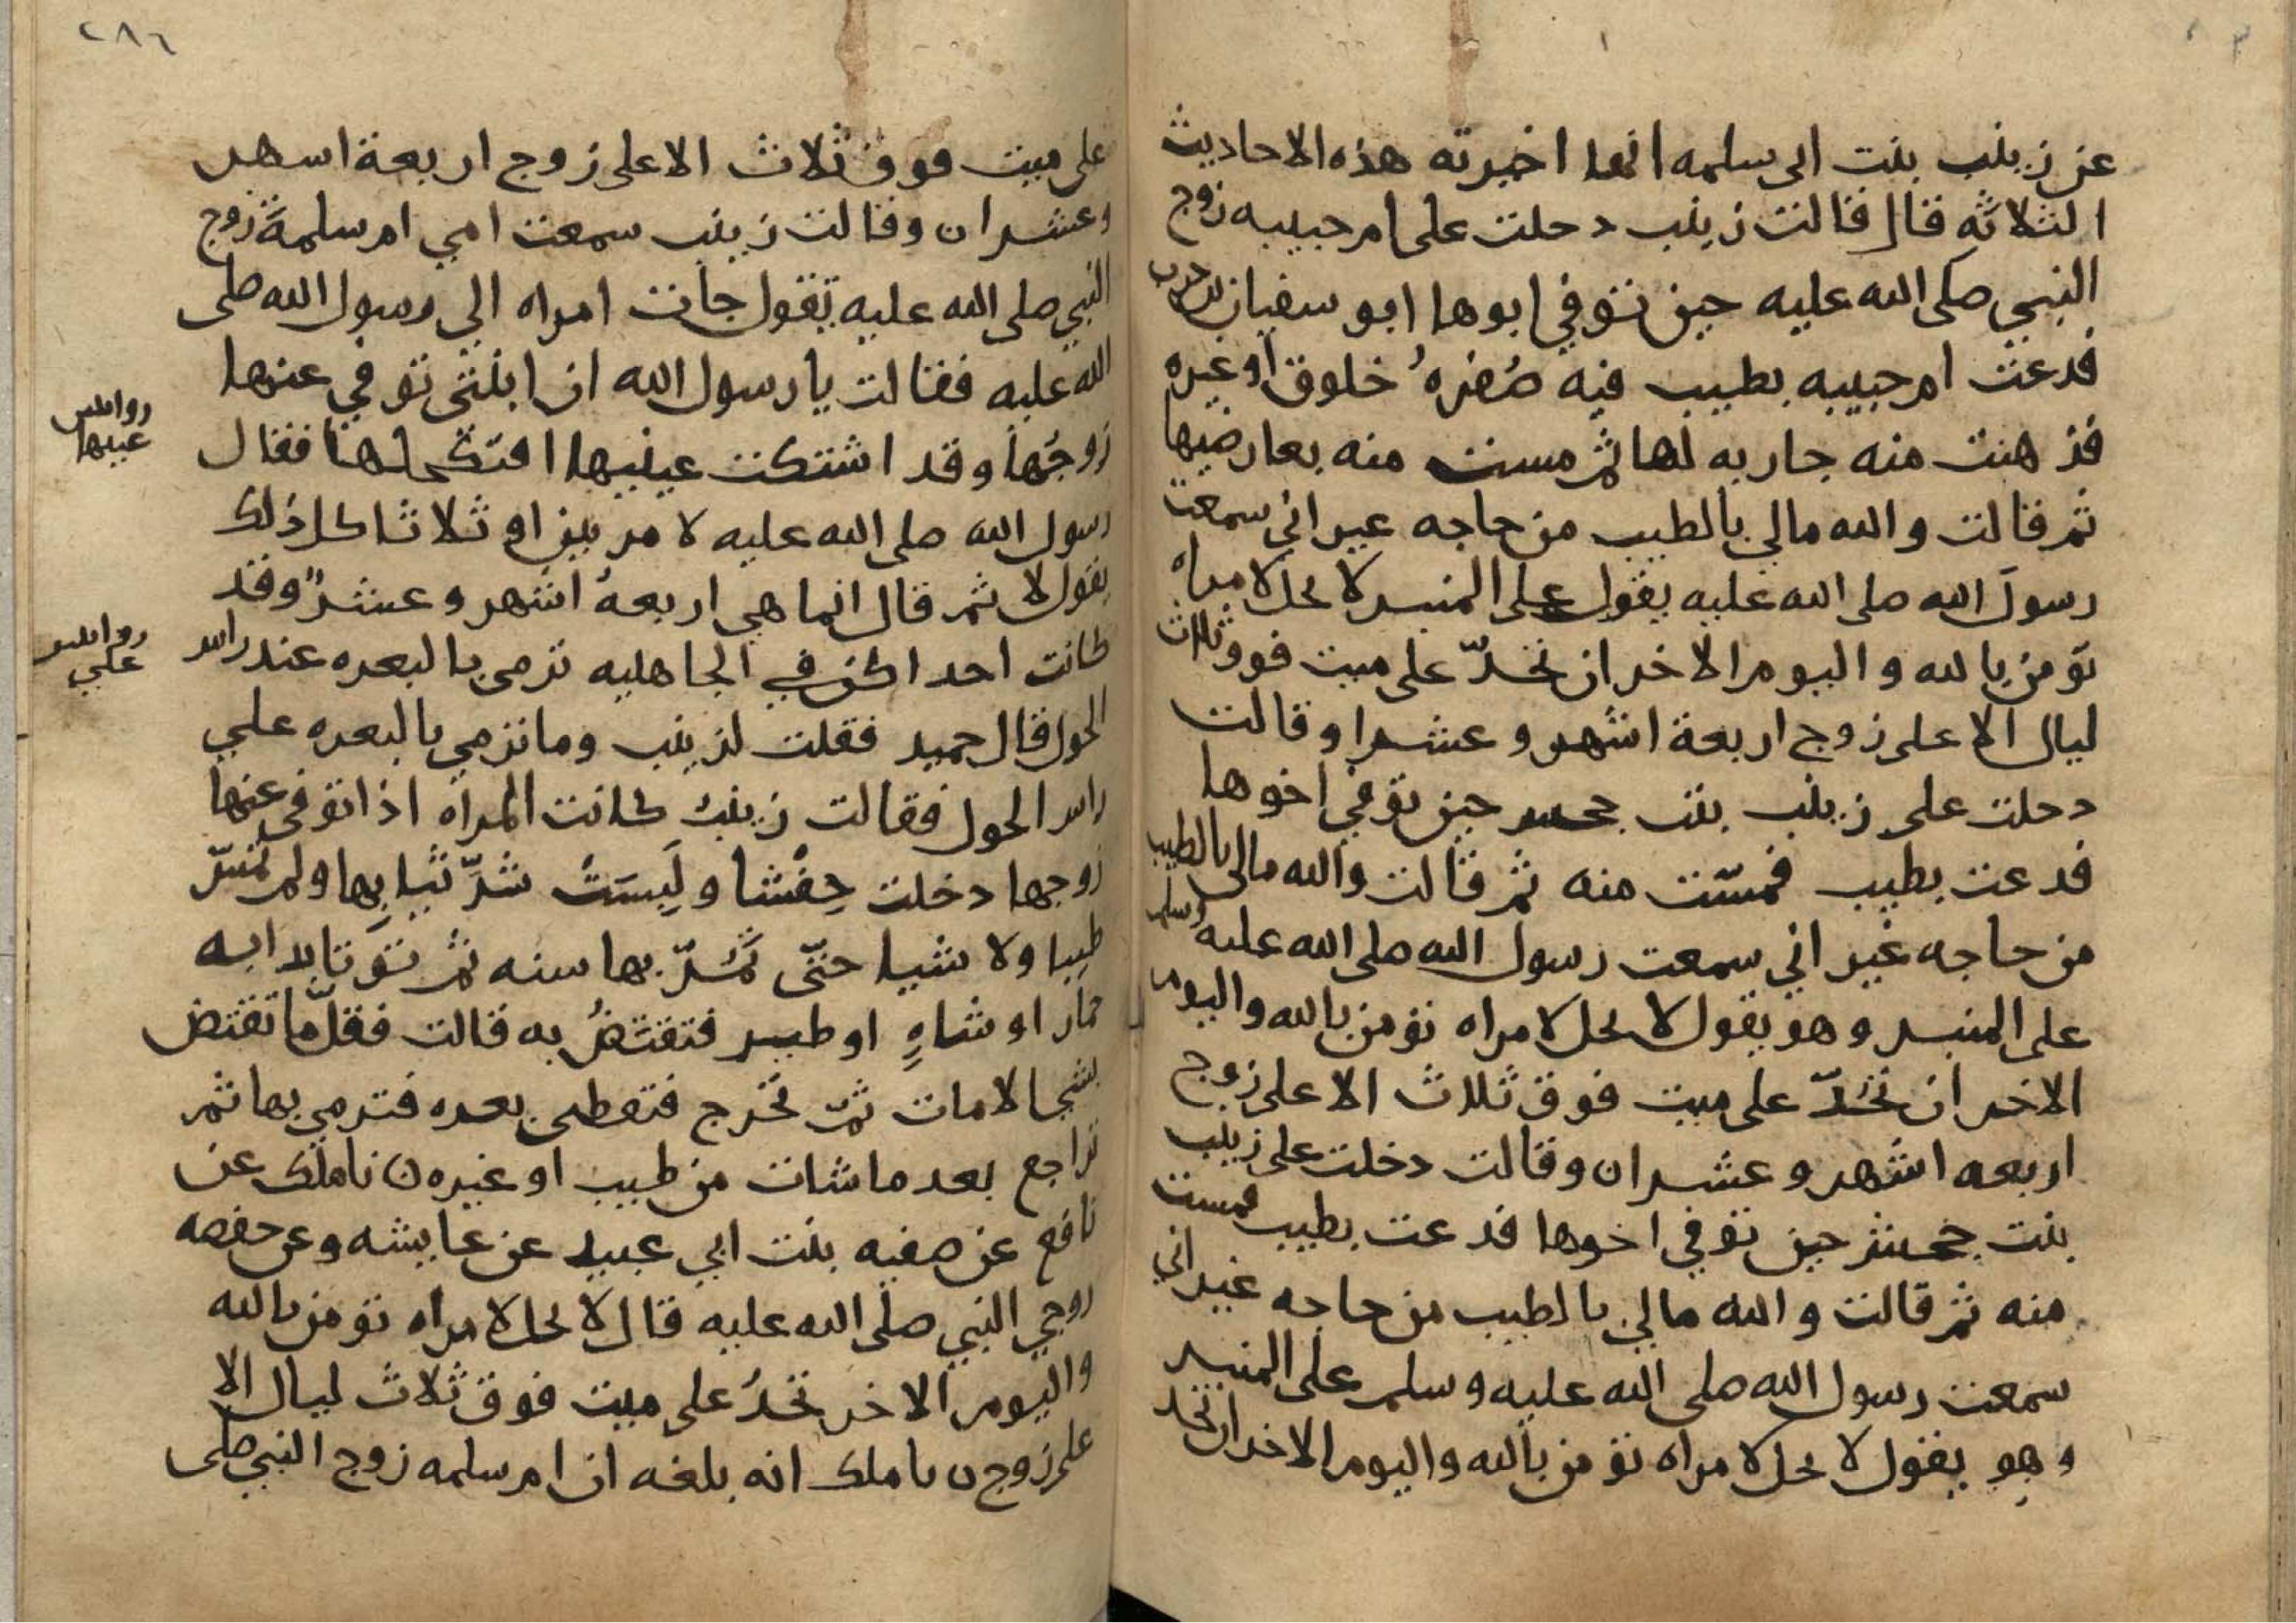 عن زينب بنت ابى سلمه انها اخبرته هذه الاحاديث
الثلاثه قال قالت زينب دخلت على ام حبيبه زوج
النبي صلى الله عليه حين توفي ابوها ابو سفيان بن حرب
فدعت ام حبيبه بطيب فيه صُفره خلوق او غيره
فدهنت منه جاريه لها ثم مست منه بعارضيها
ثم قالت والله مالي بالطيب من حاجه غير اني سمعت
رسول الله صلى الله عليه يقول على المنبر لا يحل لامراه
تومن بالله واليوم الاخر ان تحدّ على ميت فوق ثلاث
ليال الا على زوج اربعة اشهر وعشرا وقالت
دخلت على زينب بنت جحش حين توفي اخوها
فدعت بطيب فمسّت منه ثم قالت والله مالى بالطيب
من حاجه غير اني سمعت رسول الله صلى الله عليه وسلم
على المنبر وهو يقول لا يحل لامراه تومن بالله واليوم
الاخر ان تحدّ على ميت فوق ثلاث الا على زوج
اربعه اشهر وعشرا ن وقالت دخلت على زينب
بنت جحش حين توفي اخوها فدعت بطيب فمست
منه ثم قالت والله مالي بالطيب من حاجه غير اني
سمعت رسول الله صلى الله عليه وسلم على المنبر
وهو يقول لا يحل لامراه تومن بالله واليوم الاخر ان تحد
٢٨٦
على ميت فوق ثلاث الا على زوج اربعة اشهر
وعشرا ن وقالت زينب سمعت امي ام سلمة زوج
النبي صلى الله عليه تقول جات امراه الي رسول الله صلى
الله عليه فقالت يا رسول الله ان ابنتى توفي عنها
زوجُها وقد اشتكت عينيها افتكحلها فقال
رسول الله صلى الله عليه لا مرتين او ثلاثا كل ذلك
يقول لا ثم قال انما هي اربعةُ اشهر وعشرٌ وقد
كانت احداكن في الجاهليه ترمي بالبعره عند راس
الحول قال حميد فقلت لزينب وما ترمي بالبعره علي
راس الحول فقالت زينب كانت المراه اذا توفى عنها
زوجها دخلت حِفْشا ولَبِسَتْ شرّ ثيابِها ولم تمسّ
طيبا ولا شيا حتّى تمُرّ بها سنه ثم توتا بدابه
حمار او شاهٍ او طير فتفتضُ به قالت فقلّما تفتض
بشي الا مات ثمّ تخرج فتعطى بعره فترمي بها ثم
تراجع بعد ما شات من طيب او غيره ن نا ملك عن
نافع عن صفيه بنت ابي عبيد عن عايشه وعن حفصه
زوجي النبي صلى الله عليه قال لا يحل لامراه تومن بالله
واليوم الاخر تحدُ على ميت فوق ثلاث ليال الا
على زوج ن نا ملك انه بلغه ان ام سلمه زوج النبي صلى
عينها
علي